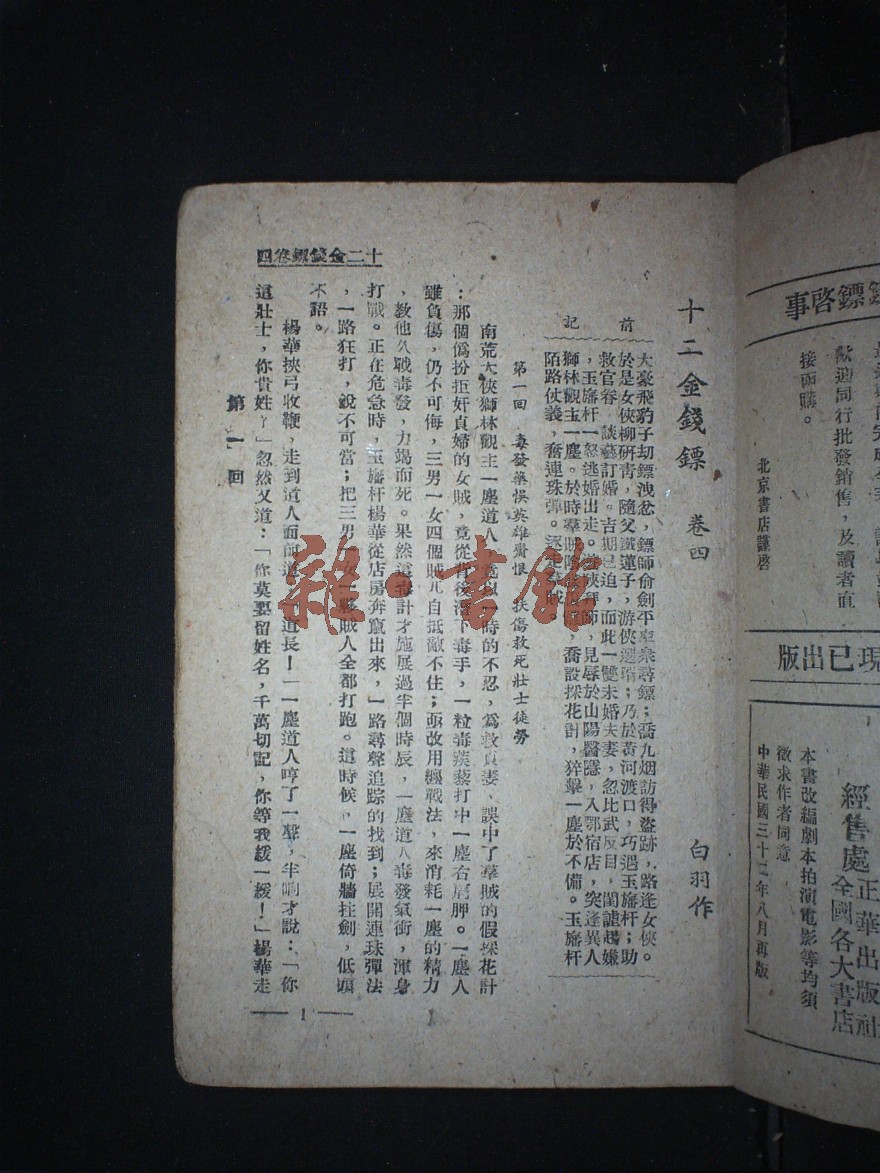 十二金錢鏢 卷四
白羽作
前記
大豪飛豹子刧鏢洩忿，鏢師俞劍平率衆尋鏢；喬九烟訪得盜跡，路逢女俠。
於是女俠柳研青，隨父鐵蓮子，游俠選壻；乃於黃河渡口，巧遇玉旛杆；助
救官眷，談藝訂婚。吉期已迫，而此一雙未婚夫妻，忽比武反目，閨謔起嫌
，玉旛杆一怒逃婚出走。拜師，見辱於山陽醫隱，入鄂宿店，突逢異人
獅林觀主一塵。於時羣賊，喬設採花計，猝擊一塵於不備。玉旛杆
陌路仗義，奮連珠彈。逐走羣賊。
第一回 毒發藥悞英雄齎恨 扶傷救死壯士徒勞
南荒大俠獅林觀主一塵道人，竟以一時的不忍，爲救貞妻、誤中了羣賊的假採花計
：那個僞扮拒奸貞婦的女賊，竟從背後潛下毒手，一粒毒蒺藜打中一塵右肩胛。一塵人
雖負傷，仍不可侮，三男一女四個賊兀自抵敵不住；亟改用纏戰法，來消耗一塵的精力
，教他久戰毒發，力竭而死。果然這毒計才施展過半個時辰，一塵道人毒發氣衝，渾身
打戰。正在危急時，玉旛杆楊華從店房奔竄出來，一路尋聲追踪的找到；展開連珠彈法
，一路狂打，銳不可當；把三男一女一夥賊人全都打跑。這時候，一塵倚牆拄劍，低頭
不語。
楊華挾弓收鞭，走到道人面前道：「道長！」一塵道人哼了一聲，半晌才說：「你
這壯士，你貴姓？」忽然又道：「你莫要留姓名，千萬切記，你等我緩一緩！」楊華走
十二金錢鏢卷四
第一回
1
雜·書館
鏢啓事
歡迎同行批發銷售，及讀者直
接函購。
北京書店謹啓
現已出版
本書改編劇本拍演電影等均須
徵求作者同意
中華民國三十二年八月再版
經售處
正華出版社
全國各大書店